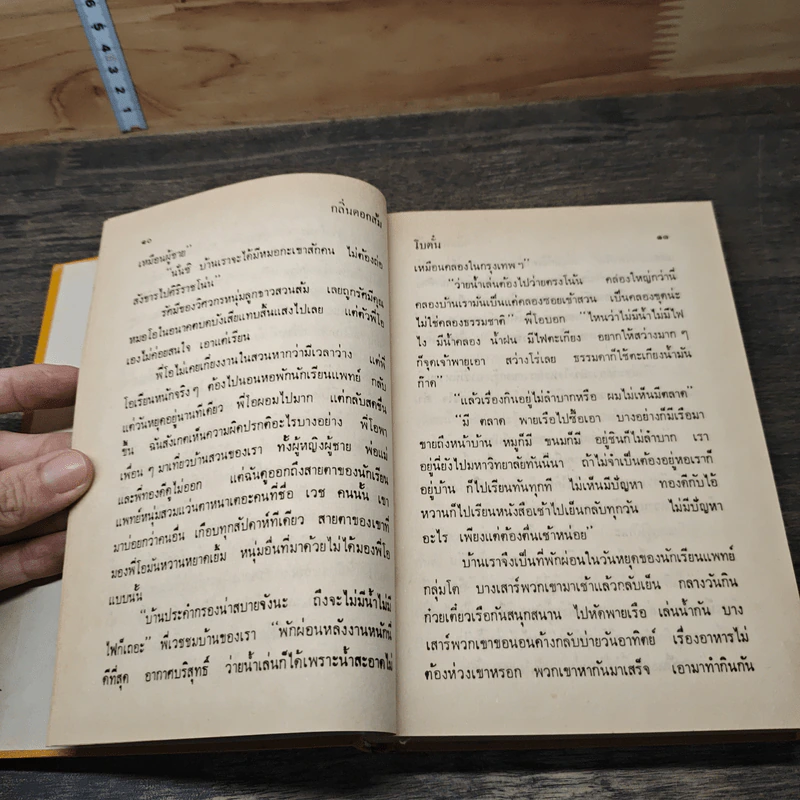 6 5 4 3 2 1
กลิ่นดอกส้ม
๑๐
เหมือนผู้ชาย"
"นั่นซิ บ้านเราจะได้มีหมอกะเขาสักคน ไม่ต้องถ่อ
สังขารไปศิริราชโน่น"
รัศมีของวิศวกรหนุ่มลูกชาวสวนส้ม เลยถูกรัศมีคุณ
หมอโอในอนาคตบดบังเสียแทบสิ้นแสงไปเลย แต่ตัวพี่โอ
เองไม่ค่อยสนใจ เอาแต่เรียน
พี่โอไม่เคยเกี่ยงงานในสวนหากว่ามีเวลาว่าง แต่พี่
โอเรียนหนักจริงๆ ต้องไปนอนหอพักนักเรียนแพทย์ กลับ
แต่วันหยุดอยู่นานทีเดียว พี่โอผอมไปมาก แต่กลับสดชื่น
ขึ้น ฉันสังเกตเห็นความผิดปรกติอะไรบางอย่าง พี่โอพา
เพื่อน ๆ มาเที่ยวบ้านสวนของเรา ทั้งผู้หญิงผู้ชาย พ่อแม่
และพี่ทองดีดูไม่ออก แต่ฉันดูออกถึงสายตาของนักเรียน
แพทย์หนุ่มสวมแว่นตาหนาเตอะคนที่ชื่อ เวช คนนั้น เขา
มาบ่อยกว่าคนอื่น เกือบทุกสัปดาห์ทีเดียว สายตาของเขาที่
มองพี่โอมันหวานหยาดเยิ้ม หนุ่มอื่นที่มาด้วยไม่ได้มองพี่โอ
แบบนั้น
"บ้านประคำกรองน่าสบายจังนะ ถึงจะไม่มีน้ำไม่มี
ไฟก็เถอะ" พี่เวชชมบ้านของเรา "พักผ่อนหลังงานหนักนี่
ดีที่สุด อากาศบริสุทธิ์ ว่ายน้ำเล่นก็ได้เพราะน้ำสะอาดไม่
โบตั๋น
๑๑
เหมือนคลองในกรุงเทพๆ"
"ว่ายน้ำเล่นต้องไปว่ายตรงโน้น คลองใหญ่กว่านี้
คลองบ้านเรามันเป็นแค่คลองซอยเข้าสวน เป็นคลองขุดน่ะ
ไม่ใช่คลองธรรมชาติ" พี่โอบอก "ไหนว่าไม่มีน้ำไม่มีไฟ
ไง มีน้ำคลอง น้ำฝน มีไฟตะเกียง อยากให้สว่างมาก ๆ
ก็จุดเจ้าพายุเอา สว่างโร่เลย ธรรมดาก็ใช้ตะเกียงน้ำมัน
ก๊าด"
"แล้วเรื่องกินอยู่ไม่ลำบากหรือ ผมไม่เห็นมีตลาด"
"มี ตลาด พายเรือไปซื้อเอา บางอย่างก็มีเรือมา
ขายถึงหน้าบ้าน หมูก็มี ขนมก็มี อยู่ชินก็ไม่ลำบาก เรา
อยู่นี่ยังไปมหาวิทยาลัยทันนี่นา ถ้าไม่จำเป็นต้องอยู่หอเราก็
อยู่บ้าน ก็ไปเรียนทันทุกที ไม่เห็นมีปัญหา ทองดีกับไอ้
หวานก็ไปเรียนหนังสือเช้าไปเย็นกลับทุกวัน ไม่มีปัญหา
อะไร เพียงแต่ต้องตื่นเช้าหน่อย"
บ้านเราจึงเป็นที่พักผ่อนในวันหยุดของนักเรียนแพทย์
กลุ่มโต บางเสาร์พวกเขามาเช้าแล้วกลับเย็น กลางวันกิน
ก๋วยเตี๋ยวเรือกันสนุกสนาน ไปหัดพายเรือ เล่นน้ำกัน บาง
เสาร์พวกเขาขอนอนค้างกลับบ่ายวันอาทิตย์ เรื่องอาหารไม่
ต้องห่วงเขาหรอก พวกเขาหากันมาเสร็จ เอามาทำกินกัน